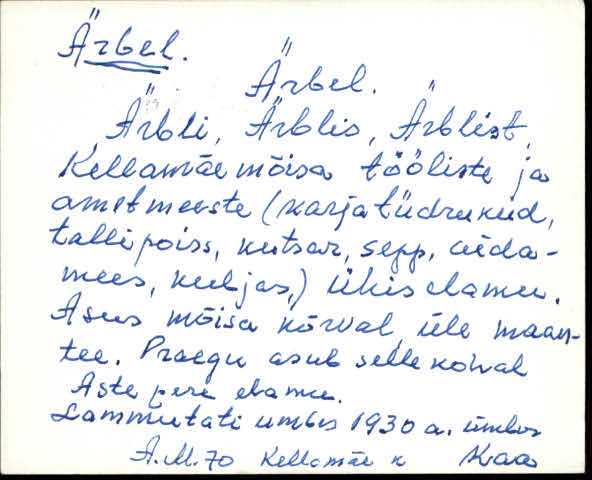 Ärbel.
Ärbel.
Ärbli, Ärblis, Ärblist,
Kellamäe mõisa tööliste ja
ametmeeste (karjatüdrukud,
tallipoiss, kutsar, sepp, aida-
mees, kubjas,) ühiselamu.
Asus mõisa kõrval, üle maan-
tee. Praegu asub selle kohal
Aste pere elamu.
Lammutati umbes 1930 a. ümber
A.M. 70 Kellamäe k Kaa